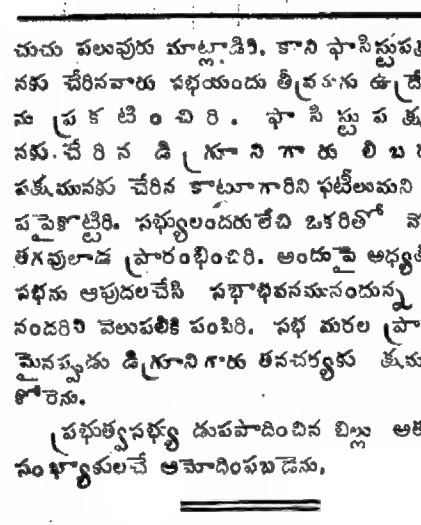 చుచు పలువురు మాట్లాడిరి. కాని ఫాసిస్టుపక్ష
నకు చేరినవారు సభయందు తీవ్రమగు ఉద్రే
ను ప్రకటించిరి. ఫాసిస్టు పక్షు
నకు చేరిన డిగ్రూనిగారు లిబర
పక్షమునకు చేరిన కాటూగారిని ఫటీలుమని
పపైకొట్టిరి. సభ్యులందరులేచి ఒకరితో
తగవులాడ ప్రారంభించిరి. అందుపై అధ్యక్ష
సభను ఆపుదలచేసి సభాభవనమునందున్న
నందరిని వెలుపలికి పంపిరి. సభ మరల ప్రా
మైనప్పుడు డిగ్రూనిగారు తనచర్యకు క్షమ
కోరెను.
ప్రభుత్వసభ్యు డుపపాదించిన బిల్లు అధి
సంఖ్యాకులచే ఆమోదింపబడెను.